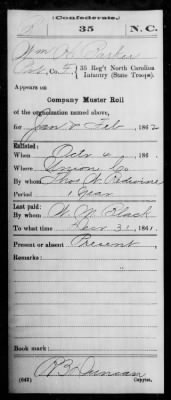 (Confederate.)
P 35 N. C.
Wm H. Parker
Co. F, 35 Reg't North Carolina
Infantry (State Troops).
Appears on
Company Muster Roll
of the organization named above,
for Jan & Feb, 1862
Enlisted:
When Octr 4, 186
Where Union Co
By whom Thos W. Redwine
Period 1 year
Last paid:
By whom W. M. Black
To what time Dec 31, 1861.
Present or absent Present
Remarks:
Book mark:
R B Duncan
(642) Copyist.